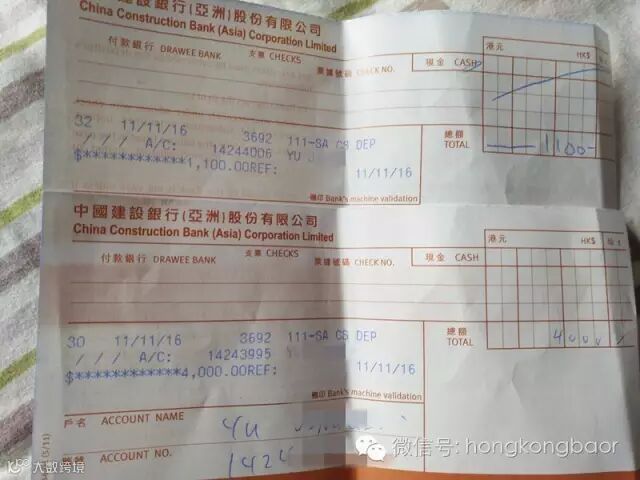 建設銀行(亞洲)股份有限公司
China Construction Bank (Asia) Corporation Limited
付款銀行 DRAWEE BANK 支票 CHECKS 票據號碼 CHECK NO. 現金 CASH 港元 HK$
32 11/11/16 3692 111-SA CS DEP
/ / / A/C: 14244006 YU J
$************1,100.00REF: 11/11/16
總額
TOTAL 1100-
機印 Bank's machine validation
中國建設銀行(亞洲)股份有限公司
China Construction Bank (Asia) Corporation Limited
付款銀行 DRAWEE BANK 支票 CHECKS 票據號碼 CHECK NO. 現金 CASH 港元 HK$
30 11/11/16 3692 111-SA CS DEP
/ / / A/C: 14243995
$************4,000.00REF: 11/11/16
總額
TOTAL 4000/
機印 Bank's machine validation
戶名 ACCOUNT NAME YU
ACCOUNT NO. 142
(5/11)
微信号: hongkongbaor
大数跨境